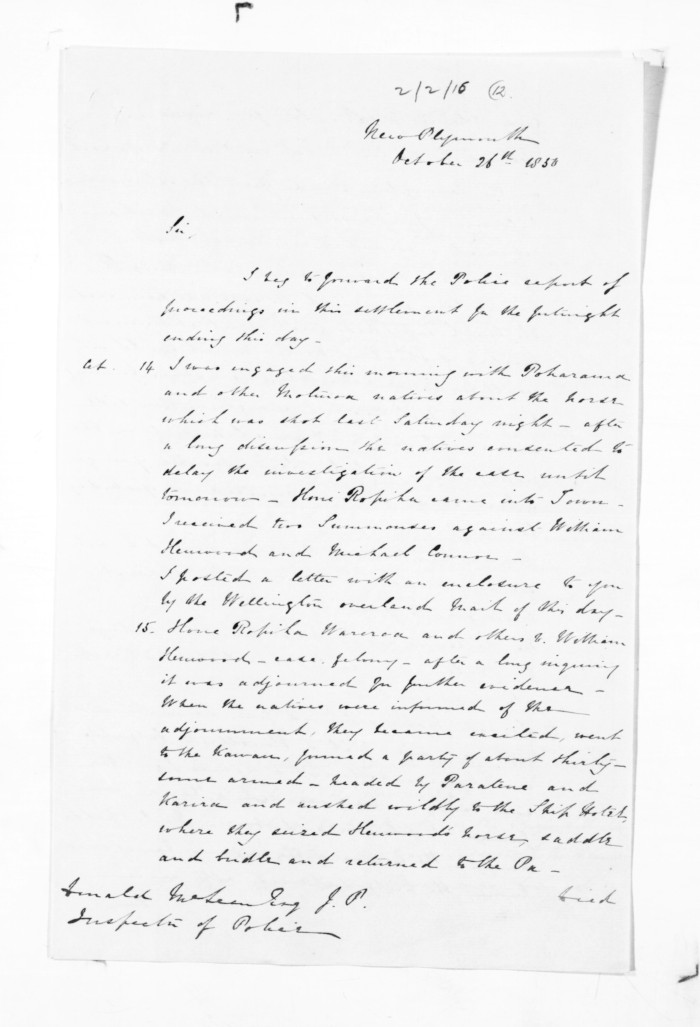 2/2/16 (12.
New Plymouth
October 26th 1850
Sir,
I beg to forward the Police report of
proceedings in this settlement for the fortnight
ending this day -
Oct. 14 I was engaged this morning with Poharama
and other Moturoa natives about the horse
which was shot last Saturday night - after
a long discussion the natives consented to
delay the investigation of the case until
tomorrow - Hone Ropiha came into Town -
I received two Summonses against William
Henwood and Michael Connor -
I posted a letter with an enclosure to you
by the Wellington overland Mail of this day -
15. Hone Ropiha Wareroa and others v. William
Henwood - case. felony - after a long inquiry
it was adjourned for further evidence -
When the natives were informed of the
adjournment, they became excited, went
to the Kawau, formed a party of about thirty -
some armed - headed by Paratene and
Karira and rushed wildly to the Ship Hotel,
where they seized Henwood's horse, saddle
and bridle and returned to the Pa -
Donald McLean Esq J. P.
Inspector of Police